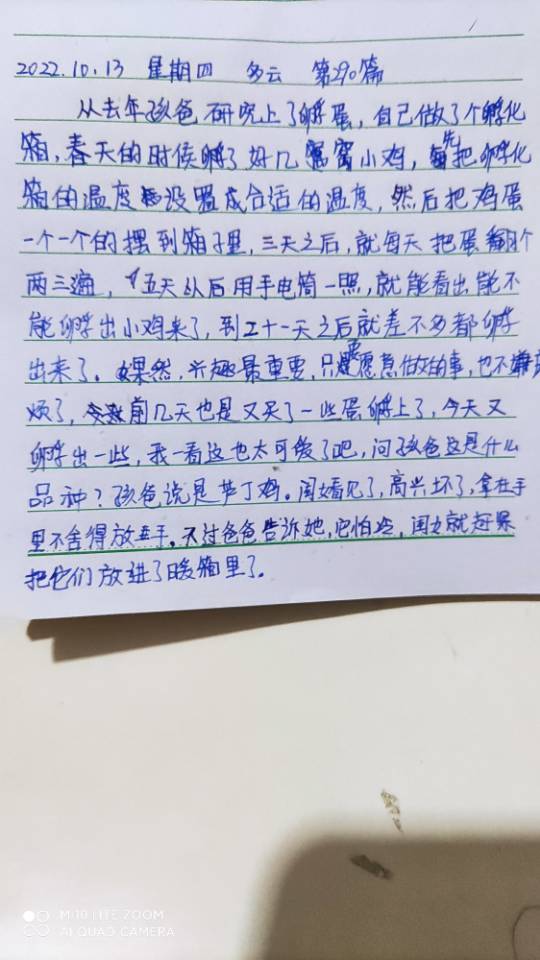 2022.10.13 星期四 多云 第290篇
从去年孩爸研究上了孵蛋，自己做了个孵化
箱，春天的时候孵了好几窝小鸡，先把孵化
箱的温度设置成合适的温度，然后把鸡蛋
一个一个的摆到箱子里，三天之后，就每天把蛋翻个
两三遍，五天以后用手电筒一照，就能看出能不
能孵出小鸡来了，到二十一天之后就差不多都孵
出来了。果然，兴趣最重要，只要愿意做的事，也不嫌麻
烦了，前几天也是又买了一些蛋孵上了，今天又
孵出一些，我一看这也太可爱了吧，问孩爸这是什么
品种？孩爸说是芦丁鸡。闺女看见了，高兴坏了，拿在手
里不舍得放手。不过爸爸告诉她，它怕冷，闺女就赶紧
把它们放进了暖箱里了。
MI 10 LITE ZOOM
AI QUAD CAMERA